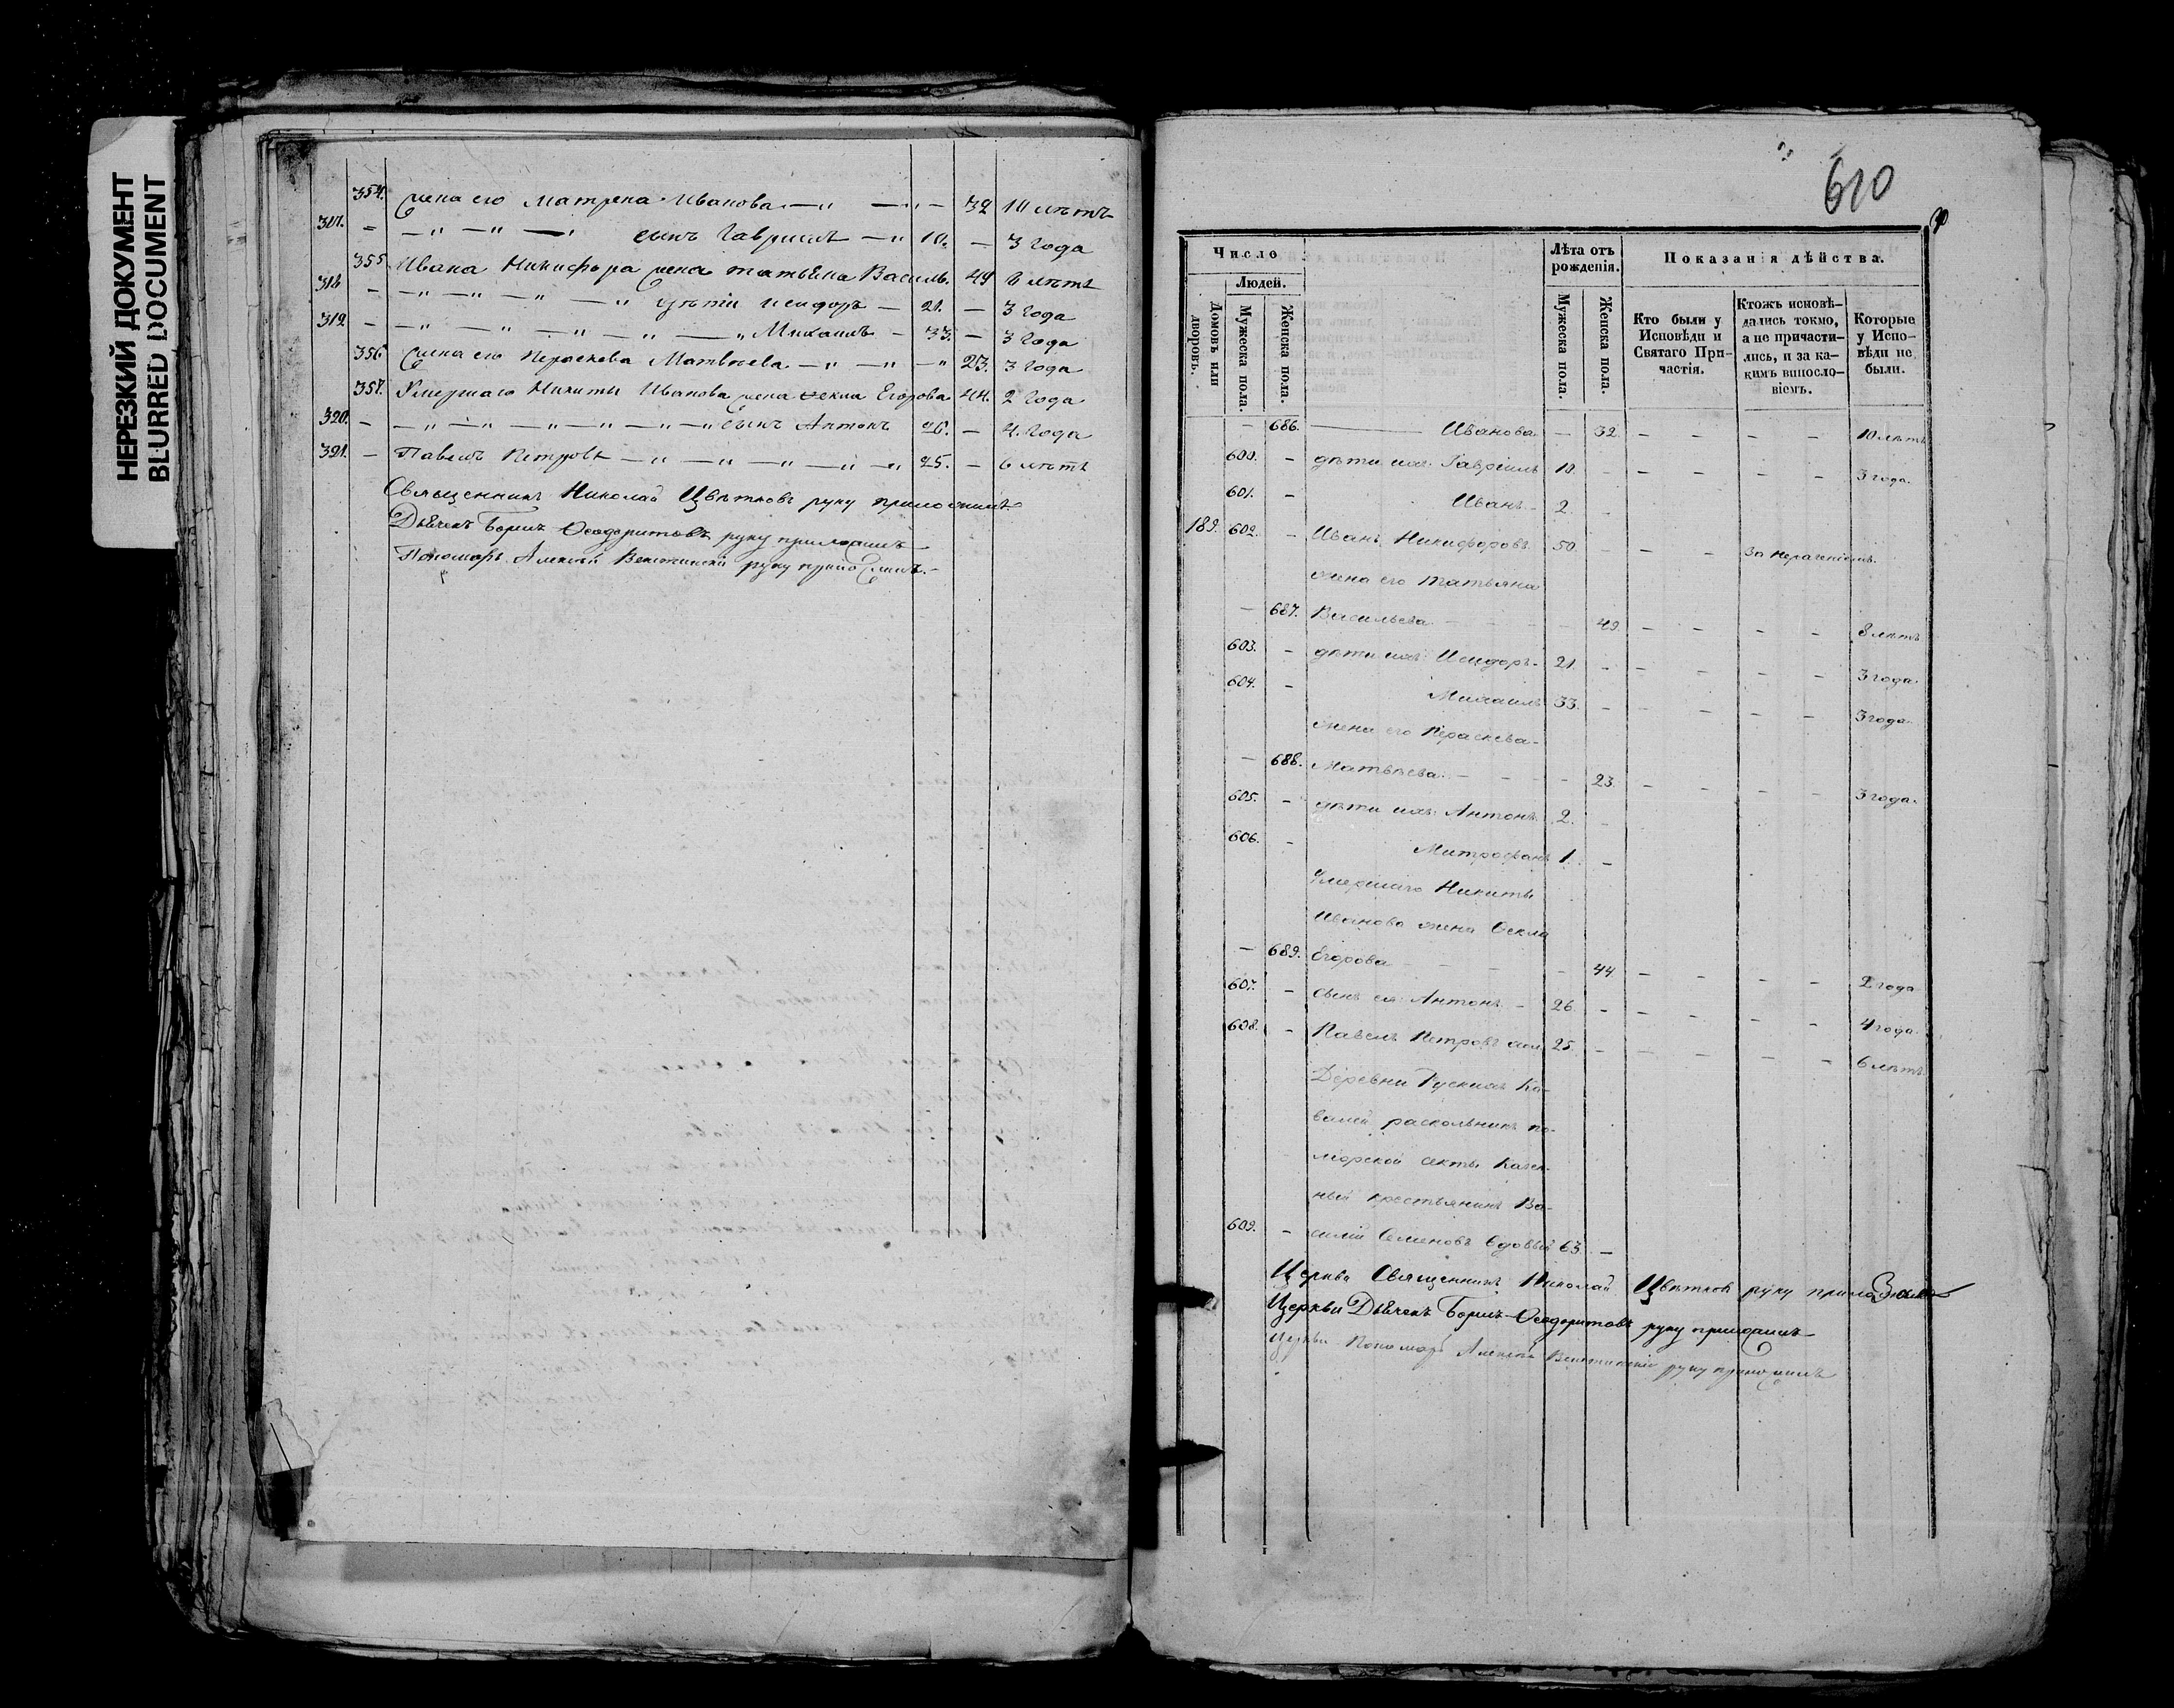 НЕРЕЗКИЙ ДОКУМЕНТ
BLURRED DOCUMENT
354. жена его Матрена Иванова — 32 10 лѣтъ
317. – сынъ Гавриилъ — 10. – 3 года
355. Ивана Никифора жена татьяна Василь. 49 6 лѣтъ
318 – дѣти Исидоръ — 21. – 3 года
319 – Михаилъ – 33. – 3 года
356 жена его Параскева Матвѣева — 23. 3 года
357. Умершаго Никиты Иванова жена Ѳекла Егорова 44. 2 года
320. – сынъ Антонъ 26. – 4 года
321. – Павелъ Петровъ — 25. – 6 лѣтъ
Священникъ Николай Цвѣтковъ руку приложилъ
Дьячекъ Борисъ Ѳеодоритовъ руку приложилъ
Пономарь Алексѣй руку приложилъ.
610
Число
Людей.
Домовъ или дворовъ.
Мужеска пола.
Женска пола.
Лѣта отъ рожденія.
Мужеска пола.
Женска пола.
Показанія дѣйства.
Кто были у Исповѣди и Святаго Причастія.
Ктожъ исповѣ-
дались токмо,
а не причасти-
лись, и за ка-
кимъ винословіемъ.
Которые у Испо-
вѣди не были.
– 686. Иванова – 32. – – – – 10 лѣтъ
600. – дѣти ихъ: Гавріилъ 10. – – – – – 3 года.
601. – Иванъ – 2. –
189. 602. – Иванъ Никифоровъ 50. – – – За нераченіемъ.
жена его Татьяна
– 687. Васильева – – – – 49. – – – – 8 лѣтъ
603. – дѣти ихъ: Исидоръ – 21. – – – – – 3 года.
604. – Михаилъ 33. – – – – 3 года.
жена его Параскева
– 688. Матвѣева – – – 23. – – – – 3 года.
605. – дѣти ихъ: Антонъ 2. –
606. – Митрофанъ 1. –
Умершаго Никиты
Иванова жена Ѳекла
– 689. Егорова – – – – 44. – – – – 2 года
607. – сынъ ея: Антонъ – 26 – – – – – 4 года.
608. – Павелъ Петровъ 25. – – – – – 6 лѣтъ.
Деревни Рускихъ Ка-
валей раскольникъ по-
морской секты Казен-
ный крестьянинъ Ва-
609. – силій Семеновъ вдовый 63. –
Церкви Священникъ Николай Цвѣтковъ руку приложилъ
Церкви Дьячекъ Борисъ Ѳеодоритовъ руку приложилъ
Церкви Пономарь Алексѣй руку приложилъ